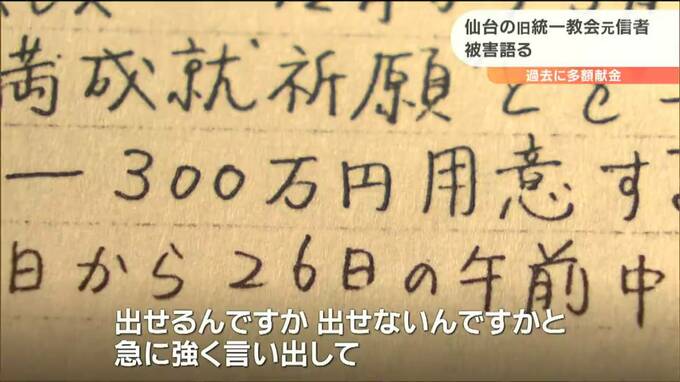 仙台の旧統一教会元信者
被害語る
過去に多額献金
満成就祈願とと
一300万円用意す
日から26日の午前中
出せるんですか 出せないんですかと
急に強く言い出して